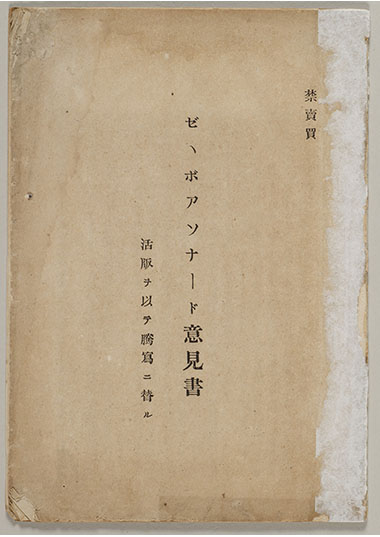 禁賣買
ゼ、ボアソナード意見書
活版ヲ以テ謄寫ニ替ル